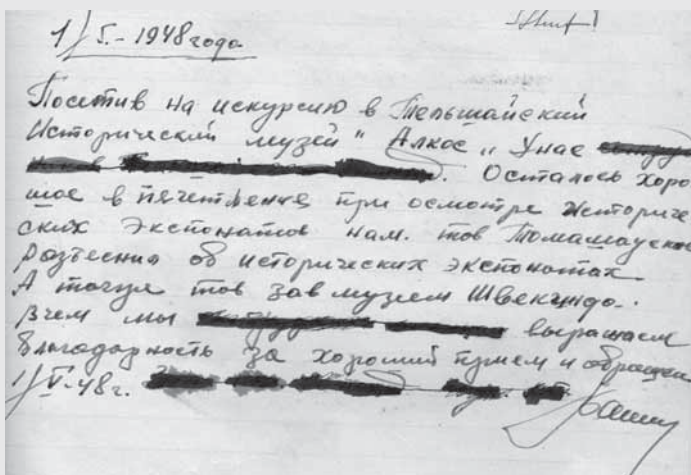 1/V.-1948 года
Посетив на искурсию в Тельшайский
Исторический музей "Алкос„ Унас
Осталось хоро
шое впечетление при осмотре историче
ских экспонатов нам. тов Томашауского
разъеснил об исторических экспонатах
А также тов зав музеем Швекждо.
вчем мы выращаем
благодарность за хороший прием и обращен
1/V-48 г.